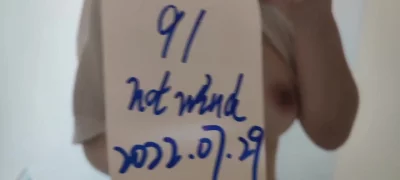 91
hot wind
2022.07.29